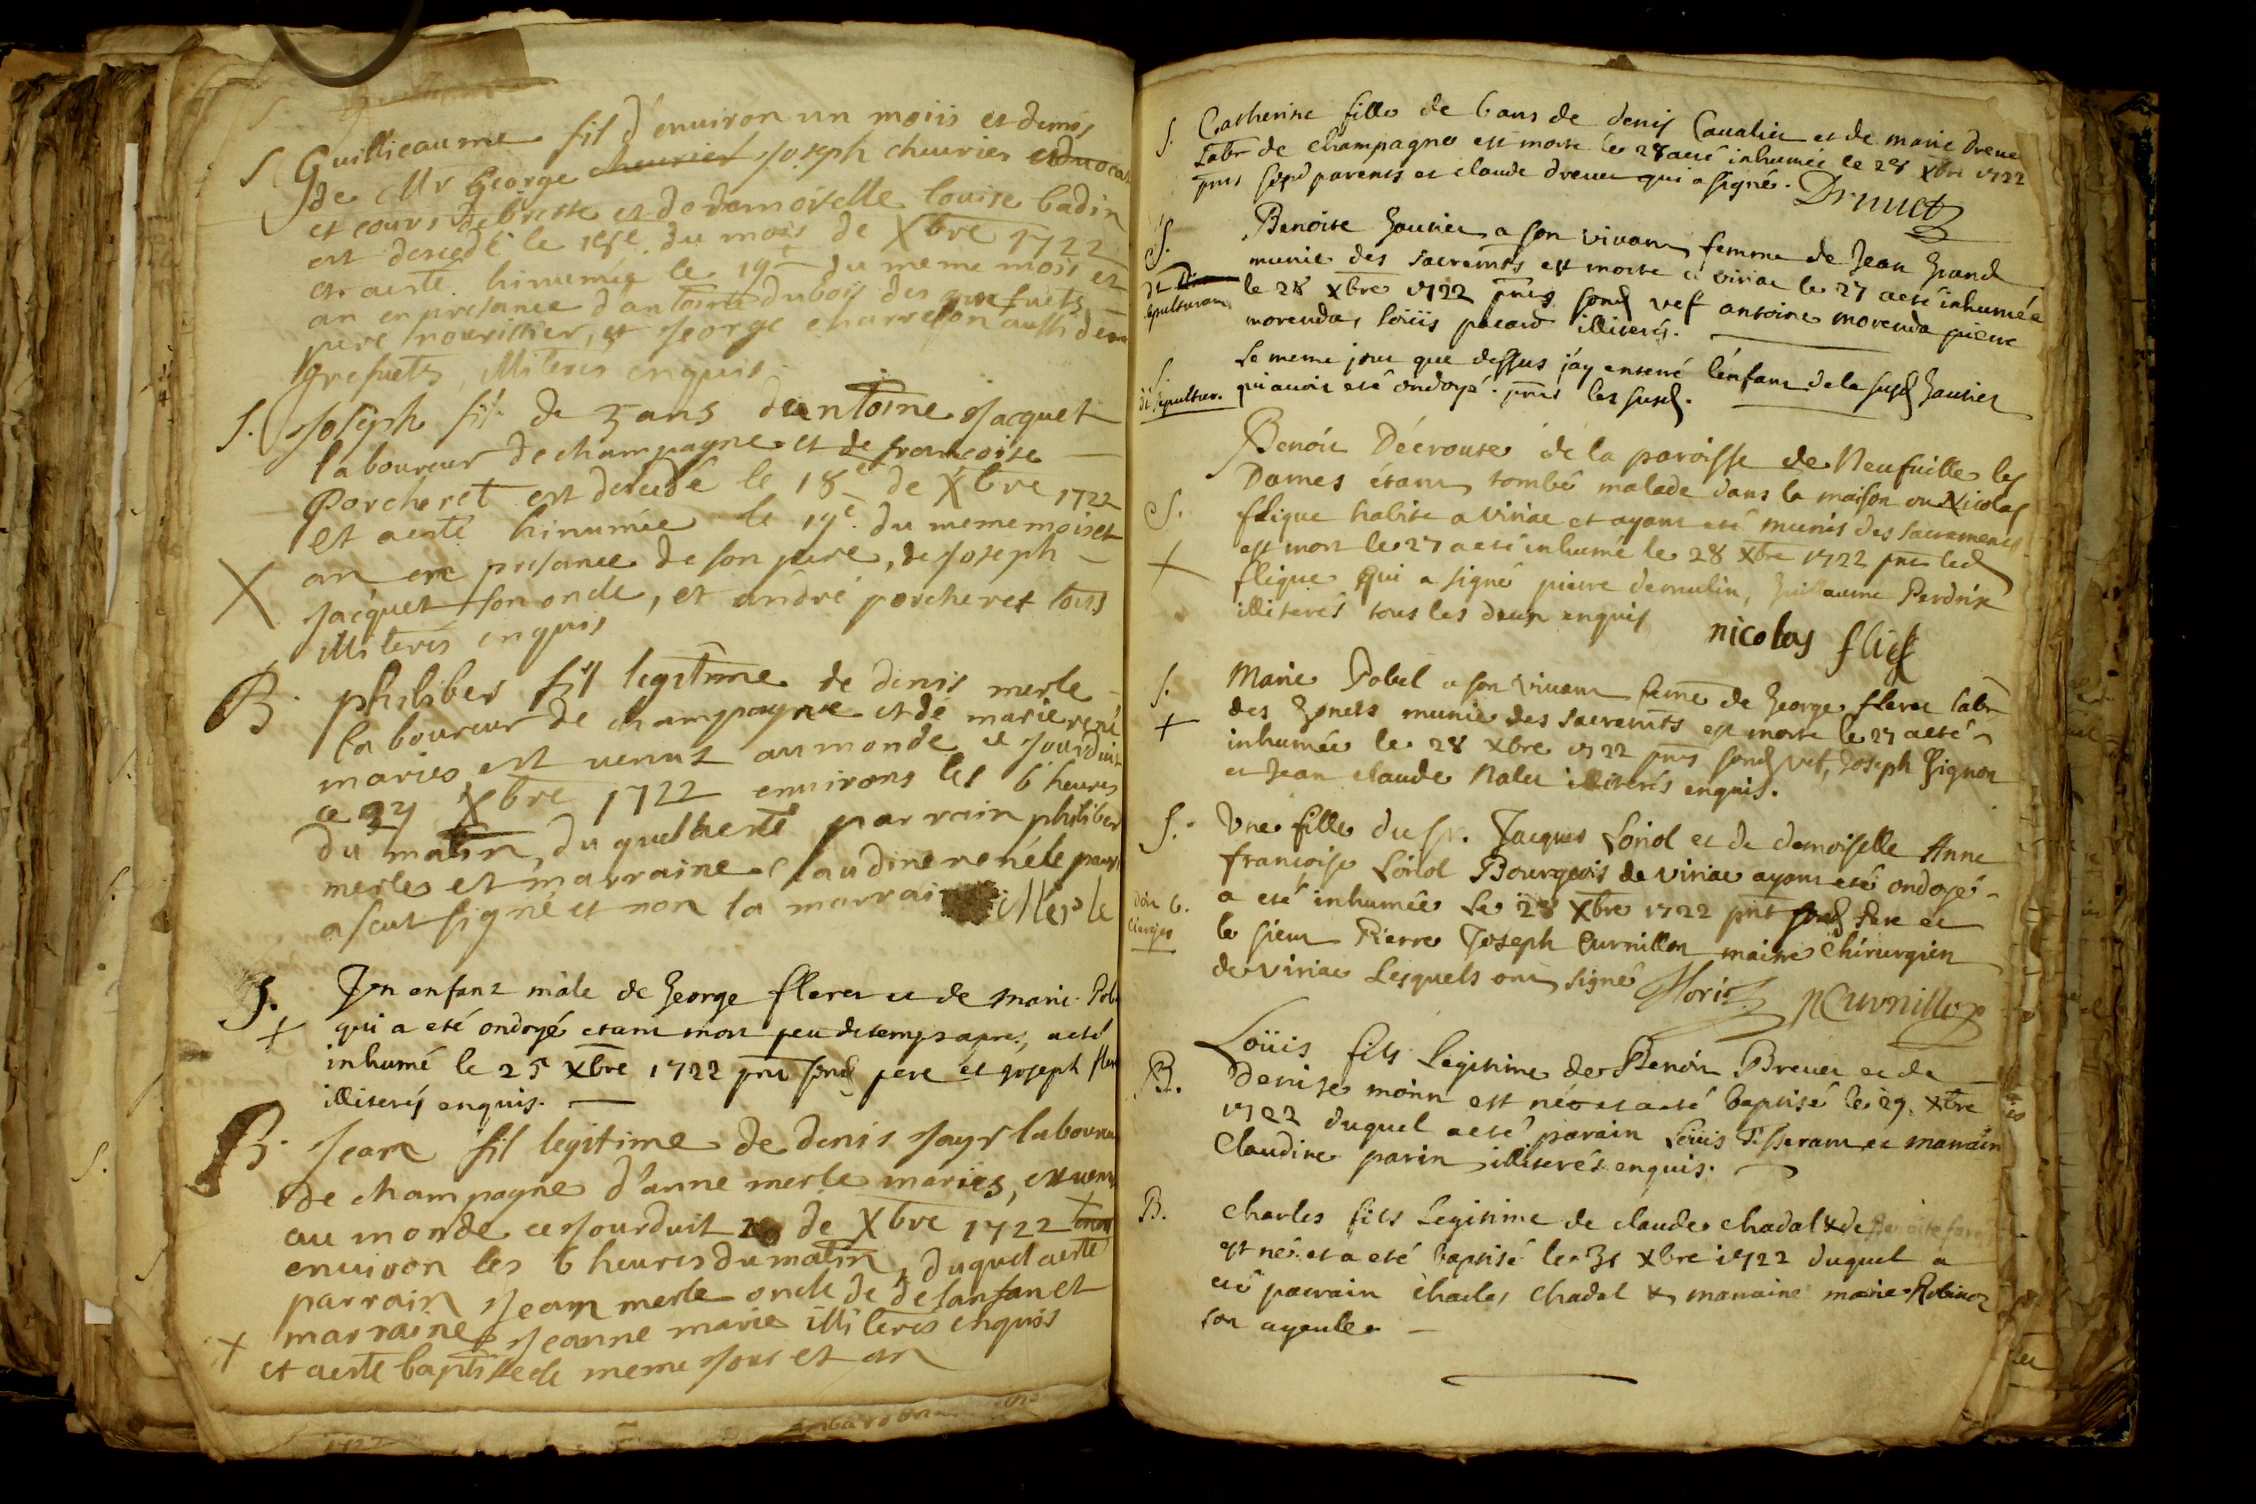 S. Guillieaume fil d'environ un moiis et demis
de Mr George cheurier Joseph cheurier
et cours de bresse et de demoiselle louise badin
est decedé le du mois de Xbre 1722
et aesté hinumée le 19e du meme mois et
an en presance d'antoine dubois des grefuets
pere nourissier, et george charreson aussi
grefuets, illiterés enquis
S. Joseph fil de 5 ans d'antoine Jacquet
laboureur de champagne et de francoise
Porcheret est decedé le 18e de Xbre 1722
et aesté hinumée le 19e du meme mois et
X an en presance de son pere, de Joseph
Jacquet son oncle, et andré porcheret tous
illiterés enquis
B. philiber fil legitime de denis merle
laboureur de champagne et de marie rené
mariés est venus au monde ce jourduit
ce 24 Xbre 1722 environs les 6 heures
du matin, du quel aesté parrain philiber
merle et marraine claudine renéle
a scut signé et non la marrai Merle
S. Un enfant mâle de George fleret et de marie Pob
+ qui a eté ondoyé etant mort peu de temps apres, a eté
inhumé le 25 Xbre 1722 pnt sond pere et joseph
illiterés enquis.
B. Jean fil legitime de denis Jayr laboureur
de champagne d'anne merle mariés, est venu
au monde ce Jourduit de Xbre 1722
environ les 6 heures du matin, duquel aesté
parrain Jean merle oncle de lanfan et
marraine Jeanne marie illiterés enquis
+ et aesté baptisé le meme Jour et an
S. Catherine fille de 6 ans de denis Cavalier et de marie dreuet
labr de champagne est morte le 28 aeté inhumée le 28 Xbre 1722
pnts parents et claude dreuet qui a signé. Druuet
S. Benoite Gautier a son vivant femme de Jean Grand
munie des sacremts est morte a viriac le 27 aeté inhumée
le 28 Xbre 1722 pnts sond vef antoine morenda pierre
morenda, loüis pacard illiterés.
Le meme jour que dessus j'ay enterré l'enfant de la susd Gautier
qui avoit eté ondoyé. pnts les susd.
Benoit Décroute de la paroisse de Neufuille les
Dames étant tombé malade dans la maison ou Nicolas
S. flique habite a viriac et ayant eté munis des sacrements
+ est mort le 27 a eté inhumé le 28 Xbre 1722 pnt led
flique qui a signé pierre demulin, Guillaume Perdrix
illiterés tous les deux enquis
nicolas flick
S. Marie Pobel a son vivant feme de George fleret labr
+ des Gonets munie des sacremts est morte le 27 aeté
inhumée le 28 Xbre 1722 pnts sond vef, Joseph Gignon
et Jean claude Nalet illiterés enquis.
S. Une fille du Sr. Jacques Loriol et de demoiselle Anne
francoise Loriol Bourgeois de viriac ayant eté ondoyé
a eté inhumée le 28 Xbre 1722 pnt sond Pere et
le sieur Pierre Joseph Cuvnillon maitre Chirurgien
de viriac Lesquels ont signé
Loriol PCuvnillon
Loüis fils legitime de Benoit Brevet et de
B. Denise moin est né et a eté baptisé le 29. Xbre
1722 duquel a eté parain et marraine
Claudine parin illiterés enquis.
B. Charles fils Legitime de claude chadal & de Benoite
est né et a eté baptisé le 31 Xbre 1722 duquel a
eté parrain charles Chadal & marraine marie Robinot
son ayeulle